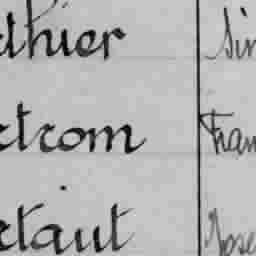 thier Sim
rtrom Fran
rtaut Jose